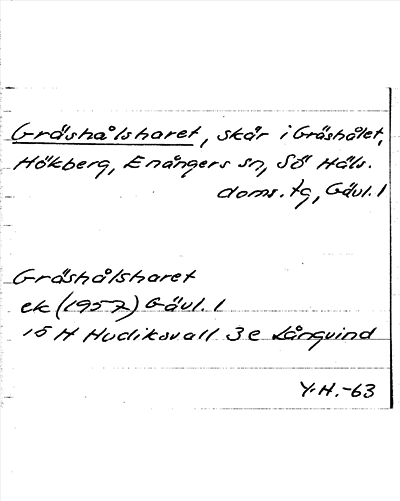 Gräshålsharet, skär i Gräshålet,
Hökberg, Enångers sn, Sö Häls.
doms. tg, Gävl. l
Gräshålsharet
ek (1957) Gävl. l
15 H Hudiksvall 3 e Långvind
Y.H.-63